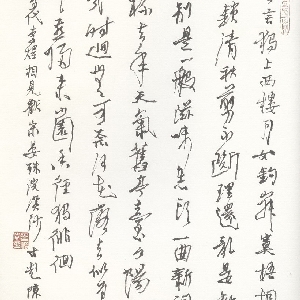 言獨上西樓月如鉤寂寞梧桐
鎖清秋剪不斷理還亂是
別是一般滋味在心頭一曲新詞
杯去年天氣舊亭臺夕陽
時迴無可奈何花落去似曾
歸來小園香徑獨徘徊
代李煜相見歡宋晏殊浣溪沙 古越陳